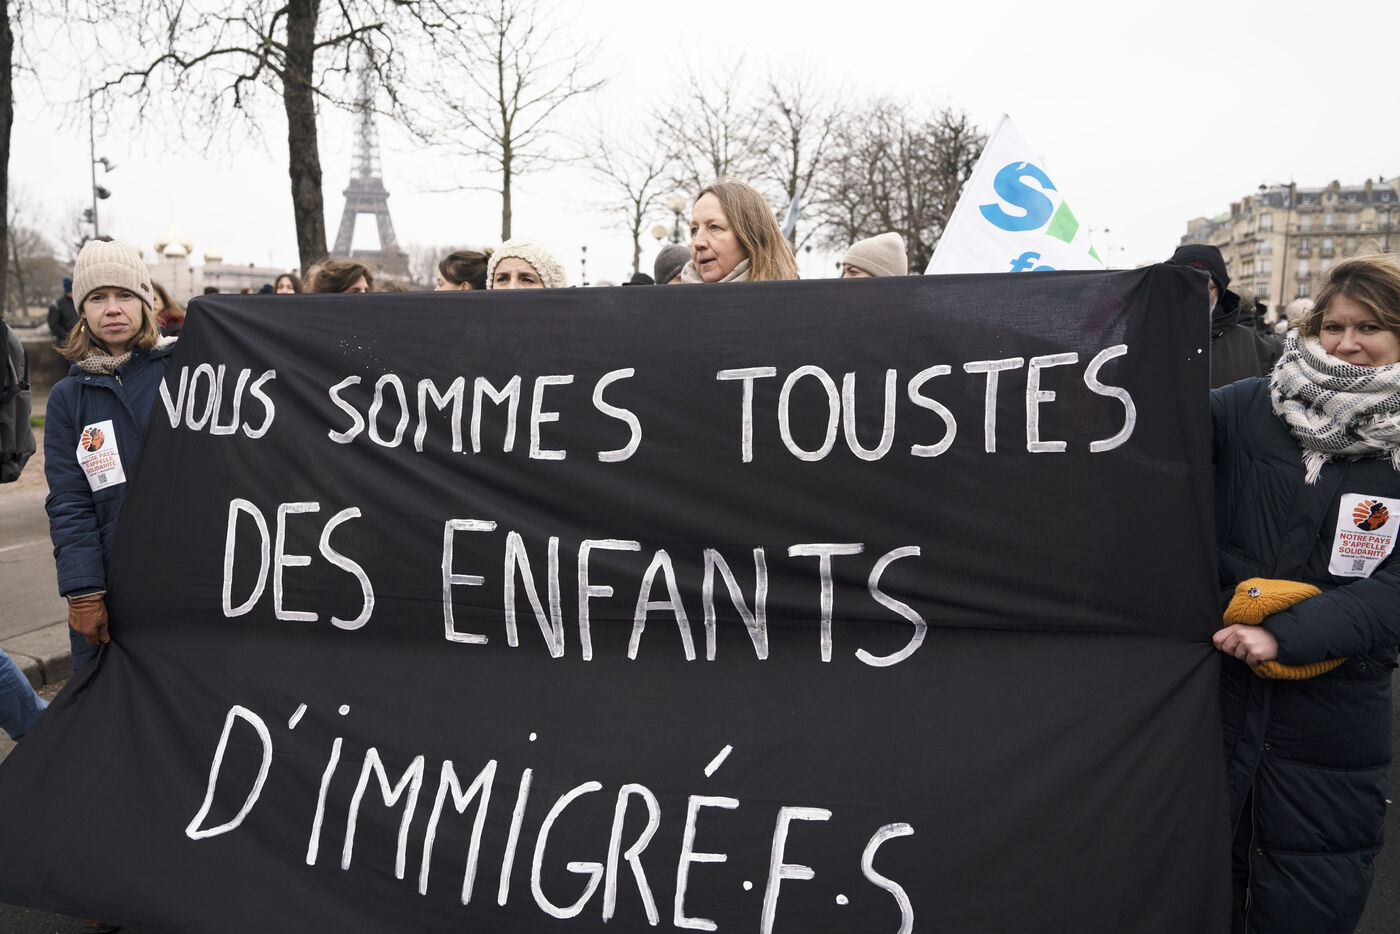 NOUS SOMMES TOUSTES
DES ENFANTS
D'IMMIGRÉ.F.S
NOTRE PAYS
S'APPELLE
SOLIDARITÉ
NOTRE PAYS
S'APPELLE
SOLIDARITÉ